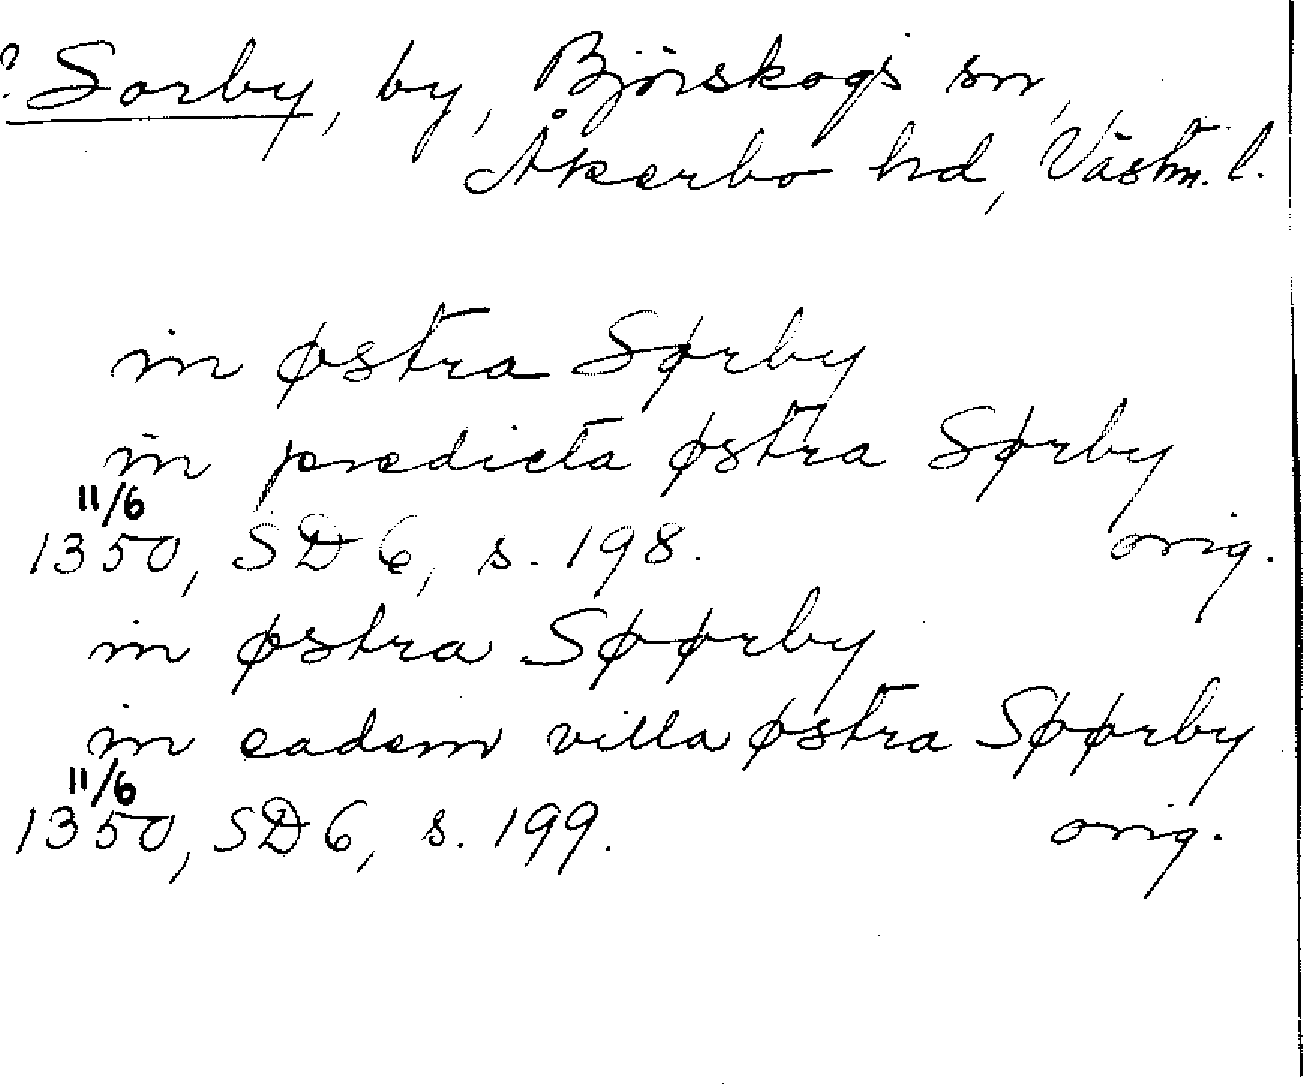 ? Sorby, by, Björskogs sn,
Åkerbo hd, Västm. l.
in østra Sørby
in predicta østra Sørby
11/6
1350, SD 6, s. 198. orig.
in østra Søørby
in eadem villa østra Søørby
11/6
1350, SD 6, s. 199. orig.